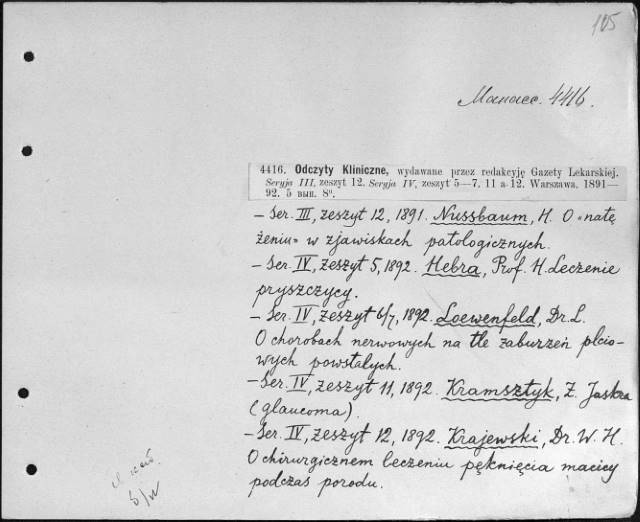 105
4416.
4416. Odczyty Kliniczne, wydawane przez redakcyję Gazety Lekarskiej.
Seryja III, zeszyt 12. Seryja IV, zeszyt 5—7, 11 a 12. Warszawa, 1891—
92. 5 вып. 8°.
– Ser. III, zeszyt 12, 1891. Nussbaum, H. O «natę
żeniu» w zjawiskach patologicznych.
– Ser. IV, zeszyt 5, 1892. Hebra, Prof. H. Leczenie
pryszczycy.
– Ser. IV, zeszyt 6/7, 1892. Loewenfeld, Dr. L.
O chorobach nerwowych na tle zaburzeń płcio-
wych powstałych.
– Ser. IV, zeszyt 11, 1892. Kramsztyk, Z. Jaskra
(glaucoma).
– Ser. IV, zeszyt 12, 1892. Krajewski, Dr. W. H.
O chirurgicznem leczeniu pęknięcia macicy
podczas porodu.